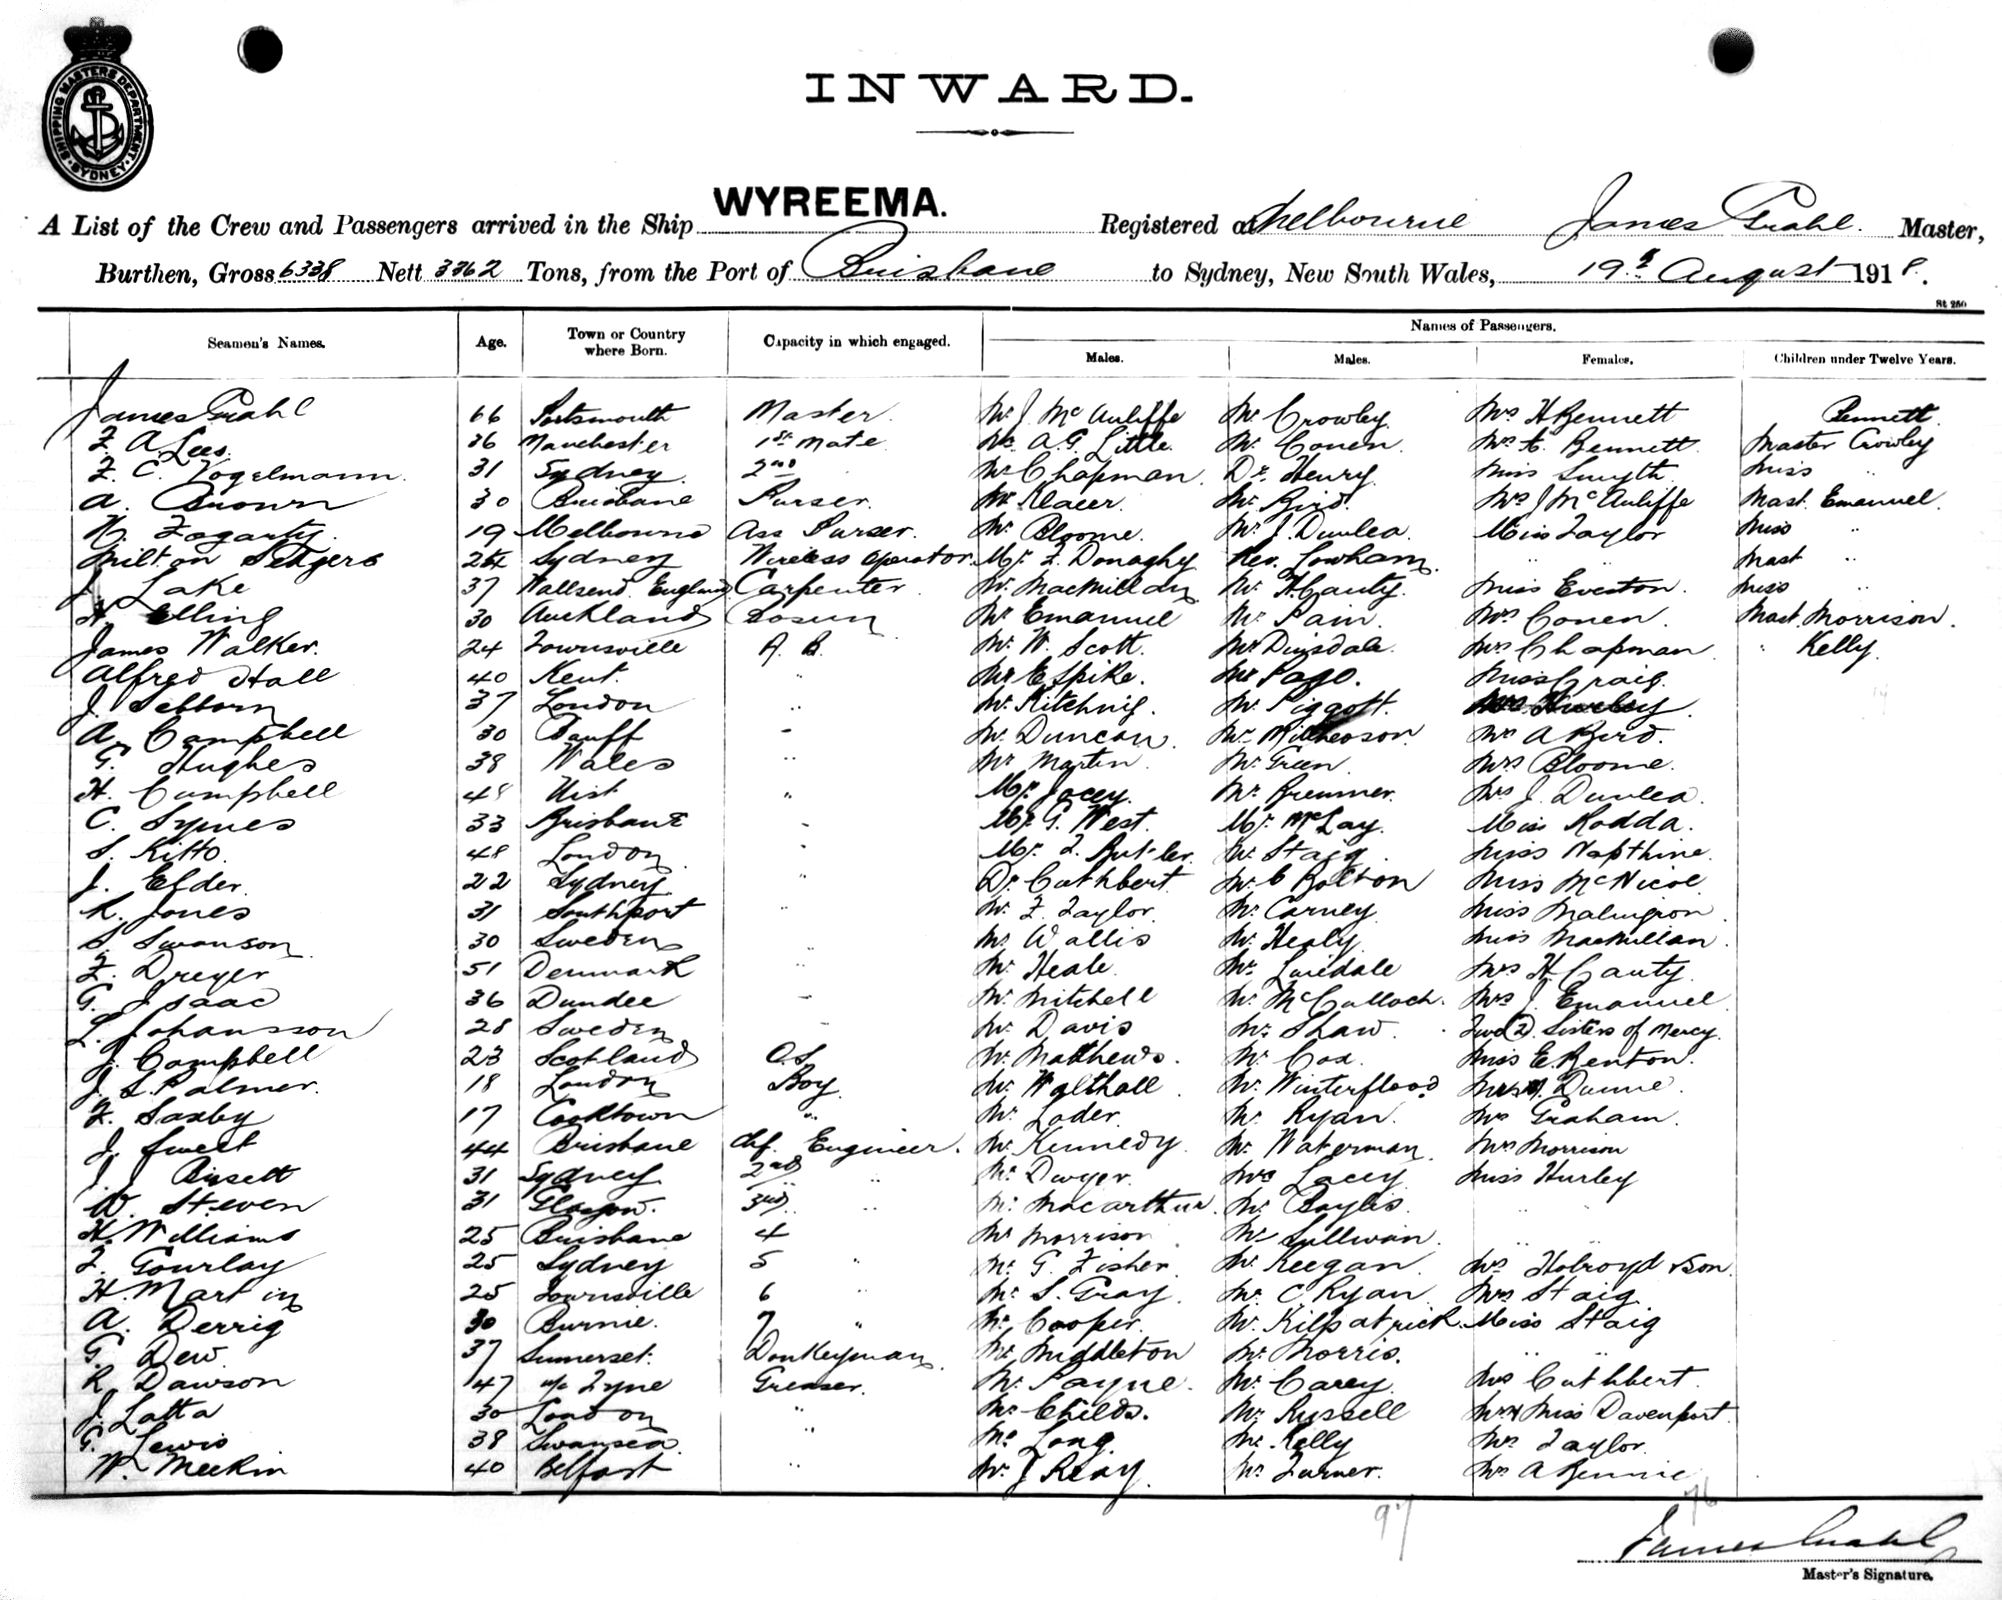 SHIPPING MASTERS DEPARTMENT SYDNEY
INWARD.
WYREEMA.
A List of the Crew and Passengers arrived in the Ship Registered at Melbourne James Grahl. Master,
Burthen, Gross 6338 Nett 3362 Tons, from the Port of Brisbane to Sydney, New South Wales, 19th August 1918.
St 250
Seamen's Names. Age. Town or Country where Born. Capacity in which engaged. Names of Passengers.
Males. Males. Females. Children under Twelve Years.
James Grahl 66 Portsmouth Master. Mr J McAuliffe Mr Crowley Mrs H Bennett Bennett
F. A Lees. 36 Manchester 1st Mate Mr A.G. Little. Mr Conen. Mrs A. Bennett Master Crowley
F. C. Vogelmann. 31 Sydney. 2nd Mr Chapman. Dr Henry. Miss Smyth. Miss "
A. Brown 30 Brisbane Purser. Mr Bird. Mrs J McAuliffe Mast. Emanuel.
Fogarty. 19 Melbourne Ass Purser. Mr Bloome. Mr J. Dunlea. Miss Taylor Miss "
Milton Sangers Sydney Wireless Operator. Mr. F. Donaghy Rev. Lowham. " " Mast "
J Lake 37 Wallsend. England Carpenter. Mr. MacMillan Mr H Cauty. Miss Everton. Miss "
H Elling 30 Auckland Bosun Mr Emanuel Mr Pain. Mrs Conen. Mast. Morrison.
James Walker. 24 Townsville A. B. Mr W. Scott. Mr Dinsdale. Mrs Chapman " Kelly.
Alfred Hall 40 Kent. " Mr E Spike. Mr Page. Miss Craig.
J. Sebborn 37 London " Mr Kitching. Mr Piggott.
A. Campbell 30 Banff " Mr Duncan. Mr Mrs A Bird.
G. Hughes 38 Wales " Mr Martin. Mr Green. Mrs Bloome.
H. Campbell 48 Uist " Mr. Jocey. Mr Bremner. Mrs J. Dunlea.
C. Symes 33 Brisbane " Mr. G. West. Mr. McLay. Miss Rodda.
S. Kitto. 48 London. " Mr. F. Butler. Mr Staig. Miss Napthine.
J. Elder. 22 Sydney " Dr Cuthbert. Mr C Bolton Miss McNicol
R. Jones 31 Southport " Mr. F. Taylor. Mr Carney. Miss
S. Swanson 30 Sweden " Mr Wallis Mr. Healy. Miss MacMillan.
F. Dreyer 51 Denmark " Mr Heale. Mr. Mrs H Cauty.
G. Isaac 36 Dundee " Mr Mitchell Mr McCulloch. Mrs J. Emanuel
L. Johansson 28 Sweden " Mr Davis Mr Shaw. Two (2) Sisters of Mercy.
J. Campbell 23 Scotland O.S. Mr Matthews. Mr Cox. Miss E. Renton.
J. S. Palmer. 18 London Boy. Mr Walthall Mr Winterflood Dunne.
F. Saxby 17 Cooktown " Mr Loder. Mr Ryan. Mrs Graham.
J. Sweet 44 Brisbane Chf. Engineer. Mr Kennedy. Mr Waterman. Mrs Morrison
J. Bissett 31 Sydney 2nd " Mr Dwyer. Mrs Lacey Miss Hurley
W. Steven 31 Glasgow. 3rd " Mr Macarthur. Mr Baylis. " "
H. Williams 25 Brisbane 4 Mr Morrison. Mr Sullivan. " "
F. Gourlay 25 Sydney 5 " Mr G. Fisher. Mr Keegan. Mrs Holroyd & Son.
H. Martin 25 Townsville 6 " Mr S. Gray. Mr C Ryan Mrs Staig
A. Derrig 30 Burnie. 7 " Mr Cooper. Mr. Kilpatrick. Miss Staig
G. Dew. 37 Somerset. Donkeyman Mr Middleton Mr Morris. " "
R. Dawson 47 Tyne Greaser. Mr. Payne. Mr. Carey. Mrs Cuthbert.
J. Latta 30 London " Mr Childs. Mr Russell Mrs & Miss Davenport.
G. Lewis 38 Swansea. " Mr Long. Mr Kelly Mrs Taylor.
W. Meekin 40 Belfast " Mr J Reay. Mr Turner. Mrs A Rennie
97 76
James Grahl
Master's Signature.